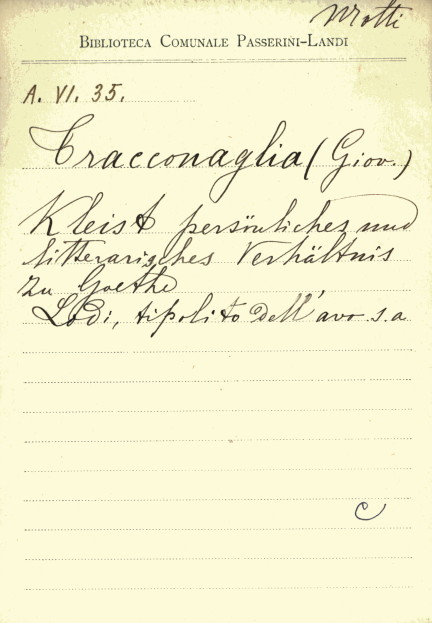 Motti
BIBLIOTECA COMUNALE PASSERINI-LANDI
A. VI. 35.
Tracconaglia (Giov.)
Kleist persönliches und
litterarisches Verhältnis
zu Goethe
Lodi, tipolito dell'avo s. a
C